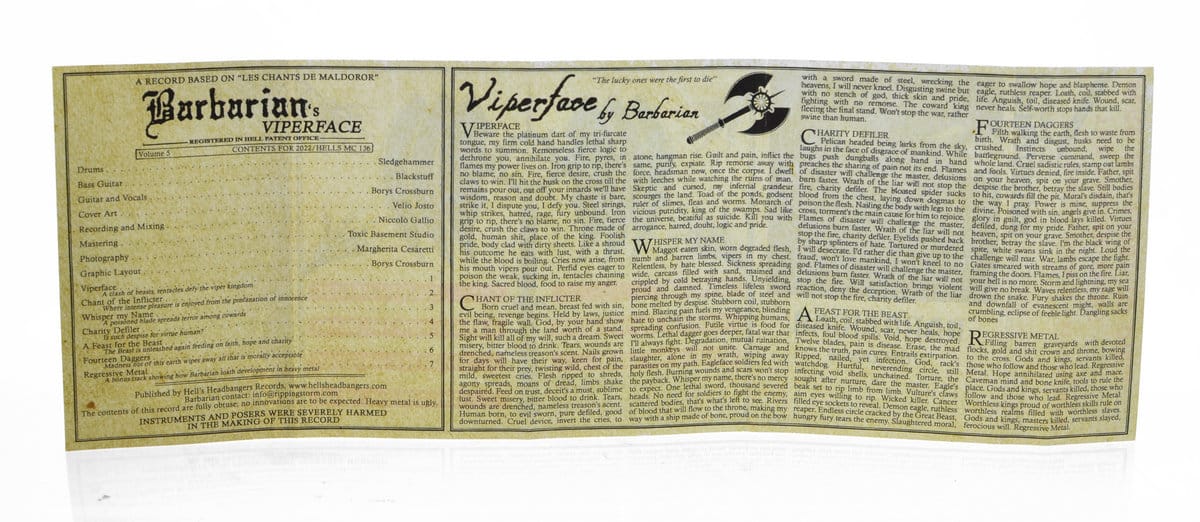 A RECORD BASED ON "LES CHANTS DE MALDOROR"
Barbarian's
VIPERFACE
REGISTERED IN HELL PATENT OFFICE
Volume 5
CONTENTS FOR 2022/HELLS MC 136
Drums Sledgehammer
Bass Guitar Blackstuff
Guitar and Vocals Borys Crossburn
Cover Art Velio Josto
Recording and Mixing Niccolò Gallio
Mastering Toxic Basement Studio
Photography Margherita Cesaretti
Graphic Layout Borys Crossburn
Viperface 1
A clash of beasts, tentacles defy the viper kingdom
Chant of the Inflicter 2
Where intense pleasure is enjoyed from the profanation of innocence
Whisper my Name 3
A poisoned blade spreads terror among cowards
Charity Defiler 4
Is such despise for virtue human?
A Feast for the Beast 5
The Beast is unleashed again feeding on faith, hope and charity
Fourteen Daggers 6
Madness out of this earth wipes away all that is morally acceptable
Regressive Metal 7
A bonus track showing how Barbarian loath development in heavy metal
Published by Hell's Headbangers Records, www.hellsheadbangers.com
Barbarian contact: info@rippingstorm.com
The contents of this record are fully obtuse; no innovations are to be expected. Heavy metal is ugly.
INSTRUMENTS AND POSERS WERE SEVERELY HARMED
IN THE MAKING OF THIS RECORD
"The lucky ones were the first to die"
Viperface by Barbarian
VIPERFACE
Beware the platinum dart of my tri-furcate
tongue, my firm cold hand handles lethal sharp
words to summon. Remorseless fierce logic to
dethrone you, annihilate you. Fire, pyres, in
flames my power lives on. Iron grip to rip, there's
no blame, no sin. Fire, fierce desire, crush the
claws to win. I'll hit the husk on the cross till the
remains pour out, out off your innards we'll have
wisdom, reason and doubt. My chaste is bare,
strike it, I dispute you, I defy you. Steel strings,
whip strikes, hatred, rage, fury unbound. Iron
grip to rip, there's no blame, no sin. Fire, fierce
desire, crush the claws to win. Throne made of
gold, human shit, place of the king. Foolish
pride, body clad with dirty sheets. Like a shroud
his outcome he eats with lust, with a thrust,
while the blood is boiling. Cries now arise, from
his mouth vipers pour out. Perfid eyes eager to
poison the weak, sucking in, tentacles chaining
the king. Sacred blood, food to raise my anger.
CHANT OF THE INFLICTER
Born cruel and mean, breast fed with sin,
evil being, revenge begins. Held by laws, justice
the flaw, fragile wall. God, by your hand show
me a man through the land worth of a stand.
Sight will kill all of my will, such a dream. Sweet
misery, bitter blood to drink. Tears, wounds are
drenched, nameless reason's scent. Nails grown
for days will have their way, keen for pain,
straight for their prey, twisting wild, chest of the
mild, sweetest cries. Flesh ripped to shreds,
agony spreads, moans of dread, limbs shake
despaired. Feed on trust, deceit's a must, sublime
lust. Sweet misery, bitter blood to drink. Tears,
wounds are drenched, nameless reason's scent.
Human born, to evil sworn, pure defiled, good
downturned. Cruel device, invert the cries, to
atone, hangman rise. Guilt and pain, inflict the
same, purify, expiate. Rip remorse away with
force, headsman now, once the corpse. I dwell
with leeches while watching the ruins of man.
Skeptic and cursed, my infernal grandeur
scourges the land. Toad of the ponds, godsent
ruler of slimes, fleas and worms. Monarch of
vicious putridity, king of the swamps. Sad like
the universe, beatful as suicide. Kill you with
arrogance, hatred, doubt, logic and pride.
WHISPER MY NAME
Maggot eaten skin, worn degraded flesh,
numb and barren limbs, vipers in my chest.
Relentless, by hate blessed. Sickness spreading
wide, carcass filled with sand, maimed and
crippled by cold betraying hands. Unyielding,
proud and damned. Timeless lifeless sword
piercing through my spine, blade of steel and
bone melted by despise. Stubborn coil, stubborn
mind. Blazing pain fuels my vengeance, blinding
hate to unchain the storm. Whipping humans,
spreading confusion. Futile virtue is food for
worms. Lethal dagger goes deeper, fatal war that
I'll always fight. Degradation, mutual ruination,
little monkeys will not unite. Carnage and
slaughter, alone in my wrath, wiping away
parasites on my path. Eagleface soldiers fed with
holy flesh. Burning wounds and scars won't stop
the payback. Whisper my name, there's no mercy
to expect. One lethal sword, thousand severed
heads. No need for soldiers to fight the enemy,
scattered bodies, that's what's left to see. Rivers
of blood that will flow to the throne, making my
way with a ship made of bone, proud on the bow
with a sword made of steel, wrecking the
heavens, I will never kneel. Disgusting swine but
with no stench of god, thick skin and pride,
fighting with no remorse. The coward king
fleeing the final stand. Won't stop the war, rather
swine than human.
CHARITY DEFILER
Pelican headed being lurks from the sky,
laughs in the face of disgrace of mankind. While
bugs push dungballs along hand in hand
preaches the sharing of pain not its end. Flames
of disaster will challenge the master, delusions
burn faster. Wrath of the liar will not stop the
fire, charity defiler. The bloated spider sucks
blood from the chest, laying down dogmas to
poison the flesh. Nailing the body with legs to the
cross, torment's the main cause for him to rejoice.
Flames of disaster will challenge the master,
delusions burn faster. Wrath of the liar will not
stop the fire, charity defiler. Eyelids pushed back
by sharp splinters of hate. Tortured or murdered
I will desecrate. I'd rather die than give up to the
fraud, won't love mankind, I won't kneel to no
god. Flames of disaster will challenge the master,
delusions burn faster. Wrath of the liar will not
stop the fire. Will satisfaction brings violent
reaction, deny the deception. Wrath of the liar
will not stop the fire, charity defiler.
A FEAST FOR THE BEAST
Loath, coil, stabbed with life. Anguish, toil,
diseased knife. Wound, scar, never heals, hope
infects, foul blood spills. Void, hope destroyed.
Twelve blades, man is disease. Erase, the mad
knows the truth, pain cures. Entrails extirpation.
Ripped, nailed, yet infection. God, rack's
watching. Hurtful, neverending circle, still
infecting void shells, unchained. Torture, the
sought after nurture, dare the master. Eagle's
beak set to rip limb from limb. Vulture's claws
aim eyes willing to rip. Wicked killer. Cancer
filled eye sockets to reveal. Demon eagle, ruthless
reaper. Endless circle cracked by the Great Beast,
hungry fury tears the enemy. Slaughtered moral,
eager to swallow hope and blaspheme. Demon
eagle, ruthless reaper. Loath, coil, stabbed with
life. Anguish, toil, diseased knife. Wound, scar,
never heals. Self-worth stops hands that kill.
FOURTEEN DAGGERS
Filth walking the earth, flesh to waste from
birth. Wrath and disgust, husks need to be
crushed. Instincts unbound, wipe the
battleground. Perverse command, sweep the
whole land. Cruel sadistic rules, stamp out lambs
and fools. Virtues denied, fire inside. Father, spit
on your heaven, spit on your grave. Smother,
despise the brother, betray the slave. Still bodies
to hit, cowards fill the pit. Moral's disdain, that's
the way I pray. Power is mine, suppress the
divine. Poisoned with sin, angels give in. Crimes,
glory in guilt, god in blood lays killed. Virtues
defiled, dung for my pride. Father, spit on your
heaven, spit on your grave. Smother, despise the
brother, betray the slave. I'm the black wing of
spite, white swans sink in the night. Loud the
challenge will roar. War, lambs escape the fight.
Gates smeared with streams of gore, more pain
framing the doors. Flames, I piss on the fire. Liar,
your hell is no more. Storm and lightning, my sea
will give no break. Waves relentless, my rage will
drown the snake. Fury shakes the throne. Ruin
and downfall of evanescent might, walls are
crumbling, eclipse of feeble light. Dangling sacks
of bones
REGRESSIVE METAL
Filling barren graveyards with devoted
flocks, gold and shit crown and throne, bowing
to the cross. Gods and kings, servants killed,
those who follow and those who lead. Regressive
Metal. Hope annihilated using axe and mace.
Caveman mind and bone knife, tools to rule the
place. Gods and kings, servants killed, those who
follow and those who lead. Regressive Metal.
Worthless kings proud of worthless skills rule on
worthless realms filled with worthless slaves.
Gods and kings, masters killed, servants slayed,
ferocious will. Regressive Metal.